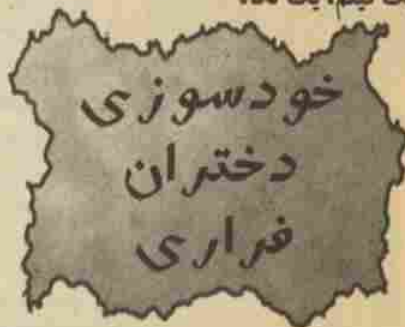 خودسوزی
دختران
فراری